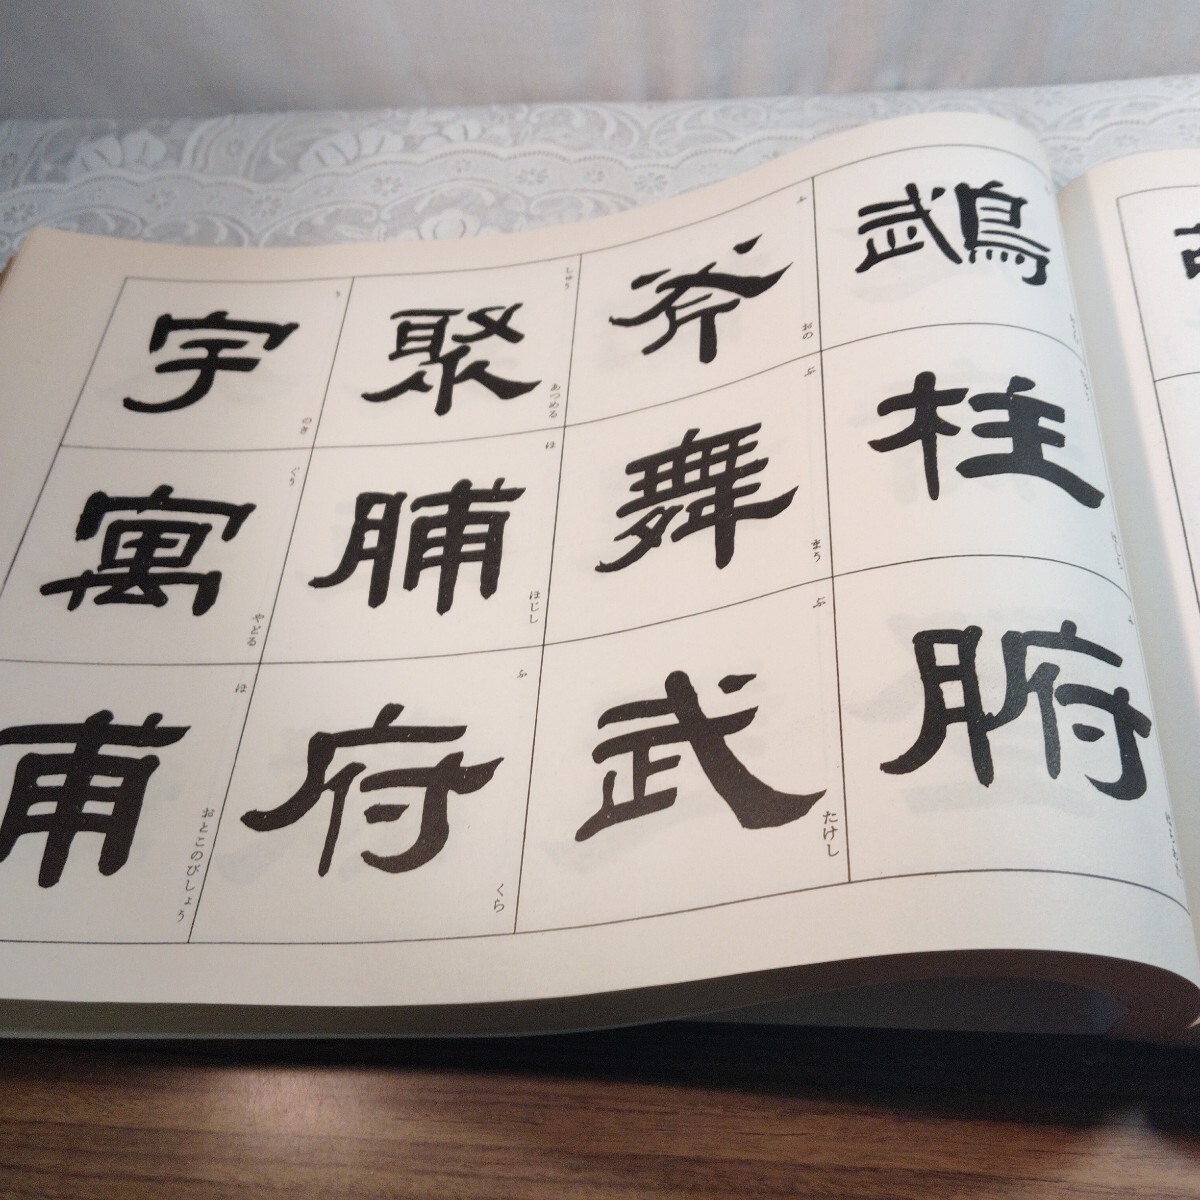 鵡
柱
腑
ふ
斧
おの
ぶ
舞
まう
ぶ
武
たけし
しゅう
聚
あつめる
ほ
脯
ほじし
ふ
府
くら
う
宇
のき
ぐう
寓
やどる
ほ
甫
おとこのびしょう